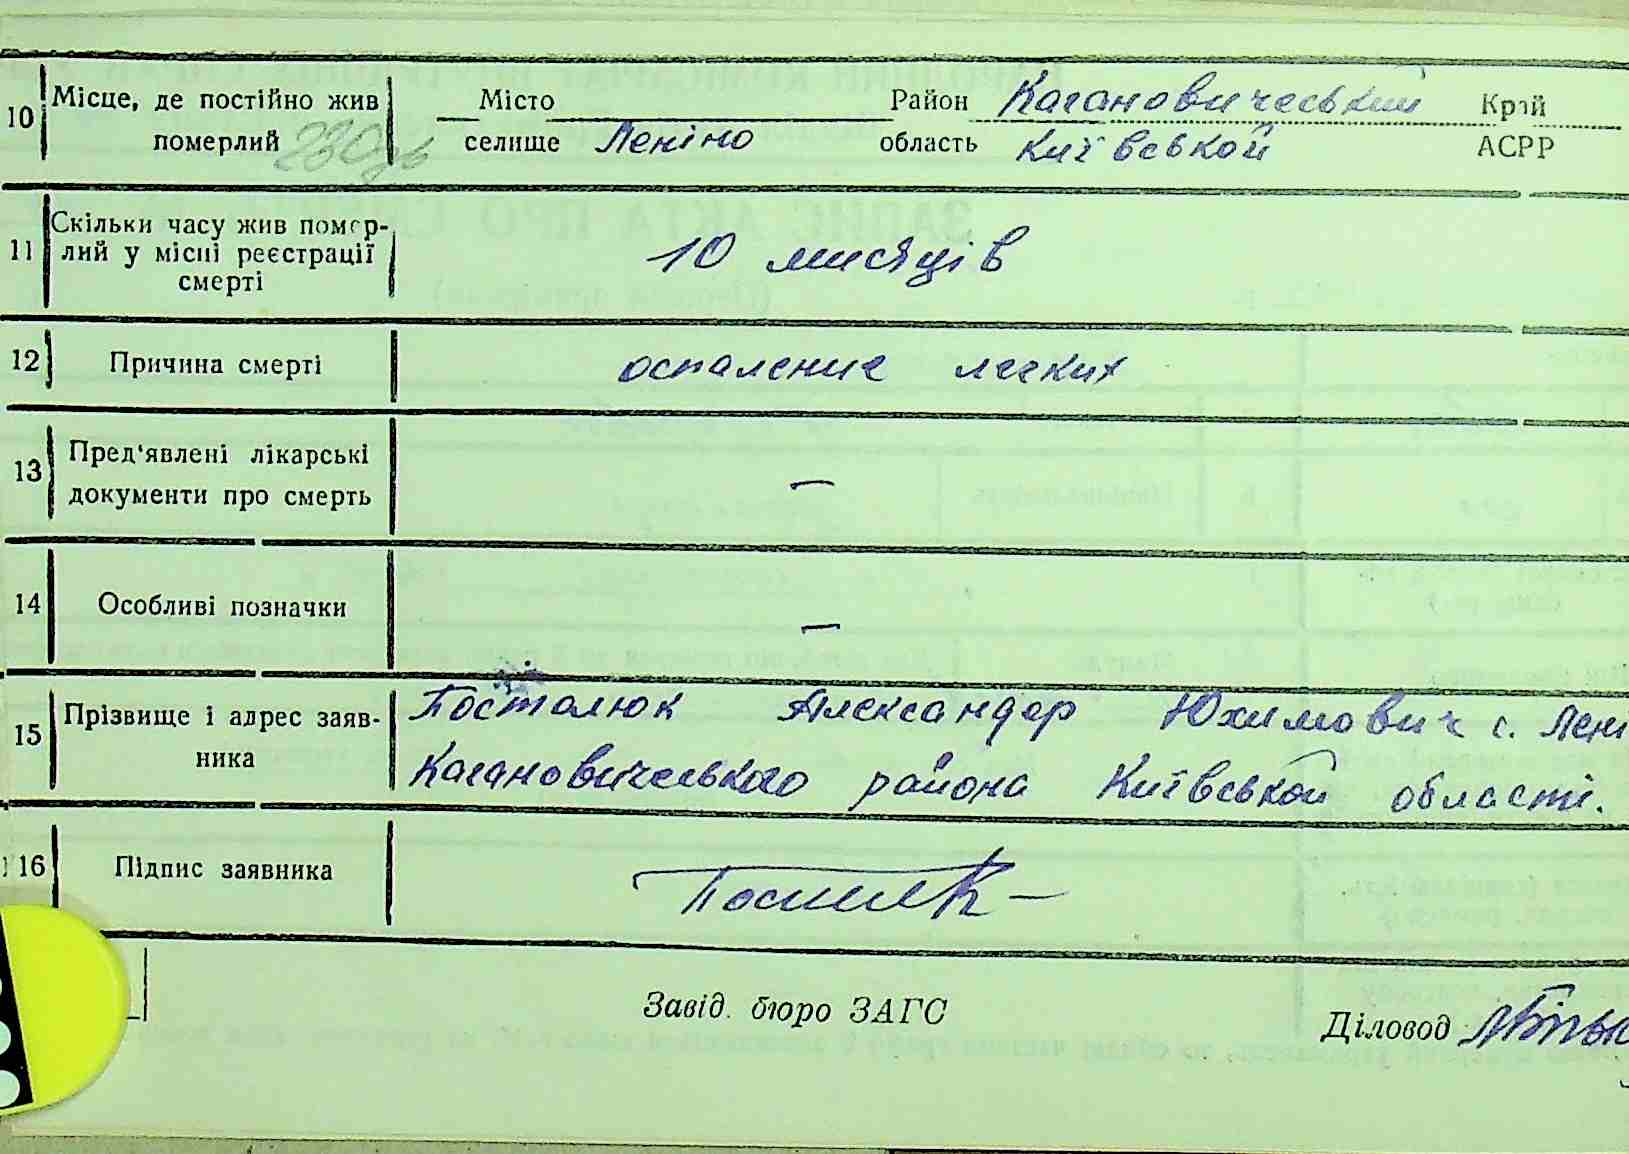 10 Місце, де постійно жив померлий Місто Район Кагановичеський Край
селище Леніно область Київськой АСРР
11 Скільки часу жив помер-
лий у місці реєстрації
смерті 10 мисяців
12 Причина смерті оспаление легких
13 Пред'явлені лікарські
документи про смерть —
14 Особливі позначки —
15 Прізвище і адрес заяв-
ника Посталюк Александер Юхимович с. Лені
Кагановичеського района Київськой області.
16 Підпис заявника
Завід. бюро ЗАГС
Діловод